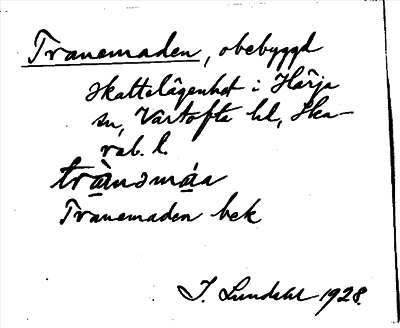 Tranemaden, obebyggd
skattelägenhet i Härja
sn, Vartofta hd, Ska-
rab. l.
trànəmáa
Tranemaden bek
I. Lundahl 1928.